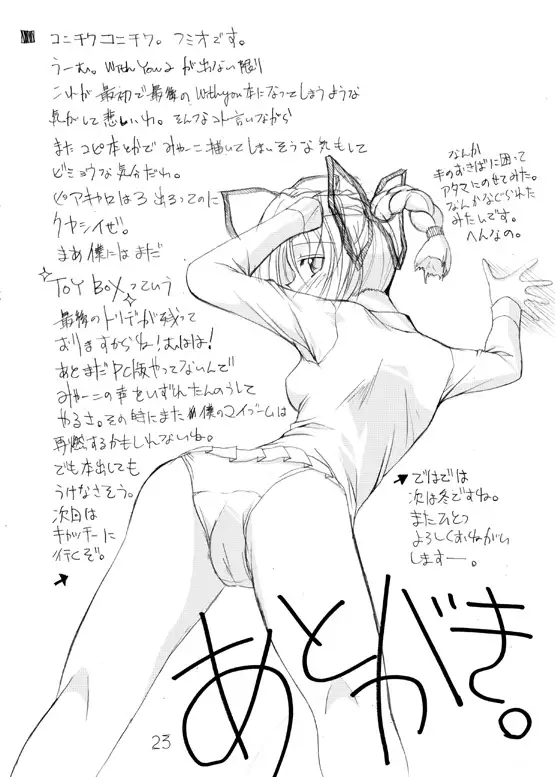 コニチワコニチワ。フミオです。
うーむ。With You 2 が出ない限り
これが最初で最後のWith you本になってしまうような
気がして悲しいわ。そんなコト言いながら
またコピ本とかでみゃーこ描いてしまいそうな気もして
ビミョウな気分だわ。
ピアキャロは3出るってのに
クヤシイぜ。
まあ僕にはまだ
TOY BOXっていう
最後のトリデが残って
おりますからね!むはは!
あとまだPC版やってないんで
みゃーこの声をいずれたんのうして
やるさ。その時にまた僕のマイブームは
再燃するかもしれんないね。
でも本出しても
うけなさそう。
次回は
キャッチーに
行くぞ。
なんか
手のむきばに困って
アタマにのせてみた。
なんかなぐられた
みたいです。
へんなの。
ではでは
次は冬ですね。
またひとつ
よろしくおねがい
します——。
あとがき。
23